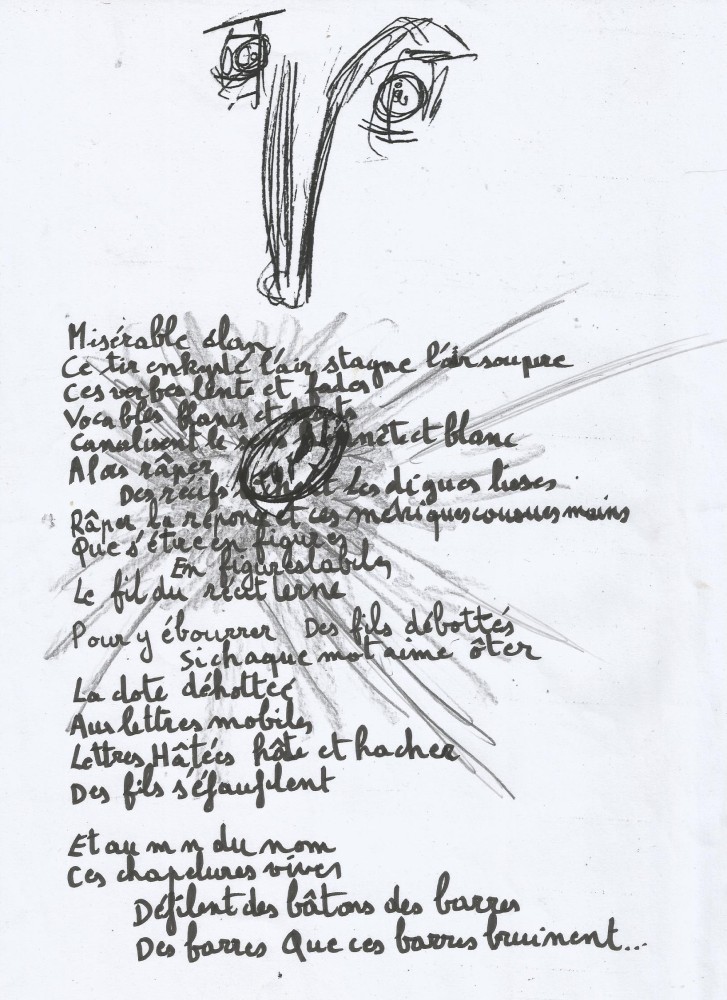 Misérable élan
Ce tir enkysté l'air stagne l'air soupire
Ces verbes lents et fades
Vocables blancs et
Canalisent le sens et blanc
Alors râper
Des récifs et les digues lisses
Râper la et ces mains
Que s'étire en figures
En figures labiles
Le fil du récit terne
Pour y ébourrer Des fils débottés
Si chaque mot aime ôter
La dote déhottée
Aux lettres mobiles
Lettres Hâtées hâte et hacher
Des fils s'éfaufilent
Et au m n du nom
Ces chapelures vives
Défilent des bâtons des barres
Des barres Que ces barres bruinent...